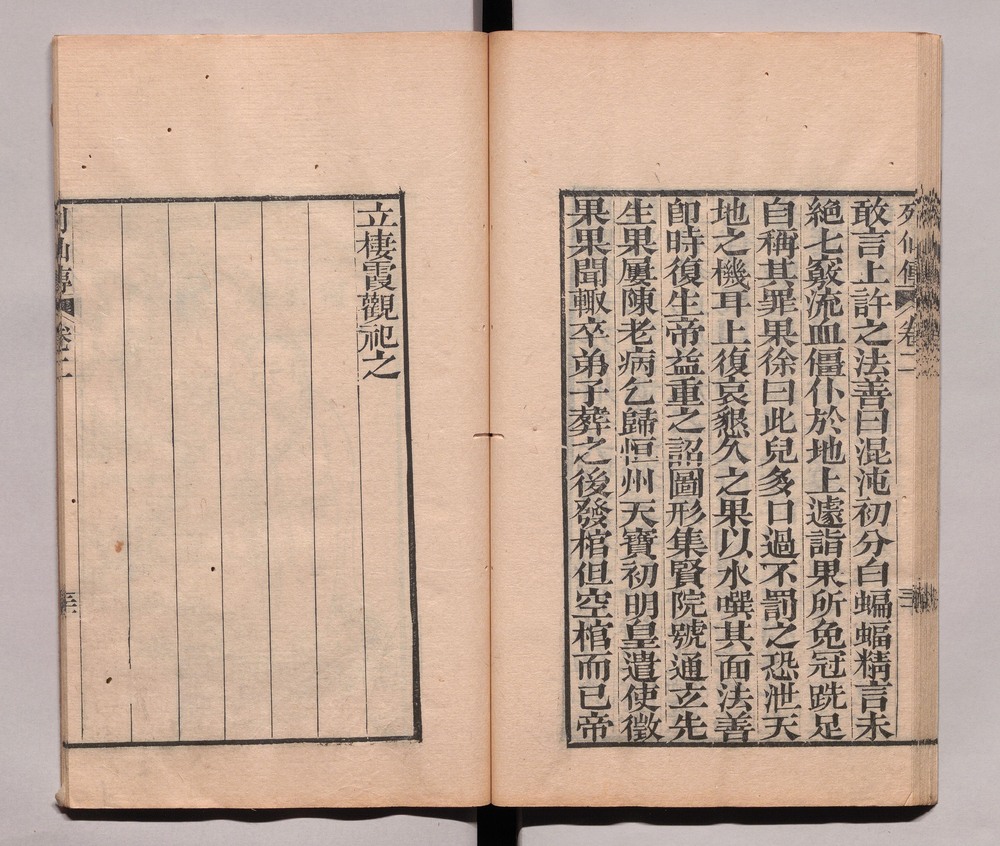 列仙傳 卷二
敢言上許之法善曰混沌初分白蝙蝠精言未
絶七竅流血僵仆於地上遽詣果所免冠跣足
自稱其罪果徐曰此兒多口過不罰之恐泄天
地之機耳上復哀懇久之果以水噀其面法善
卽時復生帝益重之詔圖形集賢院號通玄先
生果屢陳老病乞歸恒州天寶初明皇遣使徵
果果聞輙卒弟子葬之後發棺但空棺而已帝
立棲霞觀祀之
列仙傳 卷二